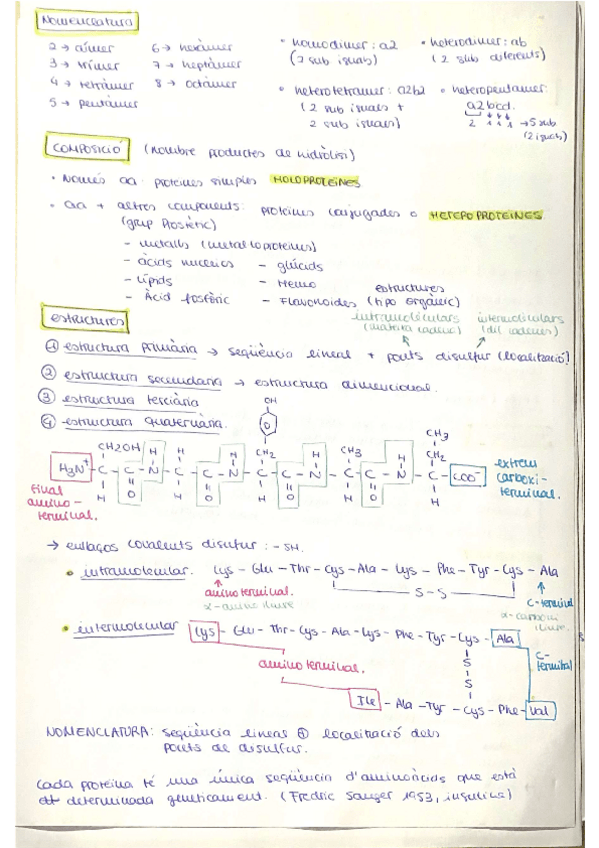 Nomenclatura
2 → dímer 6 → hexàmer • homodímer: a2 • heterodímer: ab
3 → trímer 7 → heptàmer (2 sub iguals) (2 sub diferents)
4 → tetràmer 8 → octàmer • heterotetràmer: a2b2 • heteropentàmer:
5 → pentàmer (2 sub iguals + a2bcd.
2 sub iguals) 2 1 1 1 → 5 sub
(2 iguals)
COMPOSICIÓ (nombre productes de hidròlisi)
• Només aa: proteïnes simples HOLOPROTEÏNES
• aa + altres components: proteïnes conjugades o HETEROPROTEÏNES.
(grup Prostètic)
- metalls (metal·loproteïnes)
- àcids nucleics - glúcids
- Lípids - Hemo
- Àcid fosfòric - Flavonoides (tipo orgànic)
estructures
intramoleculars intermoleculars
(mateixa cadena) (dif cadenes)
estructures
① estructura primària → seqüència lineal + ponts disulfur (localització)
② estructura secundària → estructura dimencional.
③ estructura terciària
④ estructura quaternària.
OH
O
CH2OH H H H CH2 H CH3 H CH2 CH3
H3N+ - C - C - N - C - C - N - C - C - N - C - C - N - C - COO-
H O H O H O H O H
final amino-terminal.
extrem carboxi-terminal.
→ enllaços covalents disulfur: -SH.
• intramolecular. Lys - Glu - Thr - Cys - Ala - Lys - Phe - Tyr - Cys - Ala
S - S
amino terminal. C-terminal
α-amino lliure α-carboxi lliure.
• intermolecular Lys - Glu - Thr - Cys - Ala - Lys - Phe - Tyr - Cys - Ala
S
S
amino terminal. C-terminal
Ile - Ala - Tyr - Cys - Phe - Val
NOMENCLATURA: seqüència lineal ⊕ localització dels
ponts de disulfur.
Cada proteïna té una única seqüència d'aminoàcids que està
determinada genèticament. (Fredric Sanger 1953, insulina)